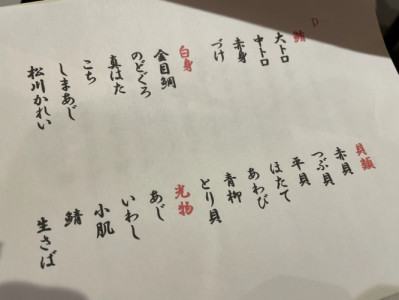 鮪
大トロ
中トロ
赤身
づけ
白身
金目鯛
のどぐろ
真はた
こち
しまあじ
松川かれい
貝類
赤貝
つぶ貝
平貝
ほたて
あわび
青柳
とり貝
光物
あじ
いわし
小肌
鯖
生さば